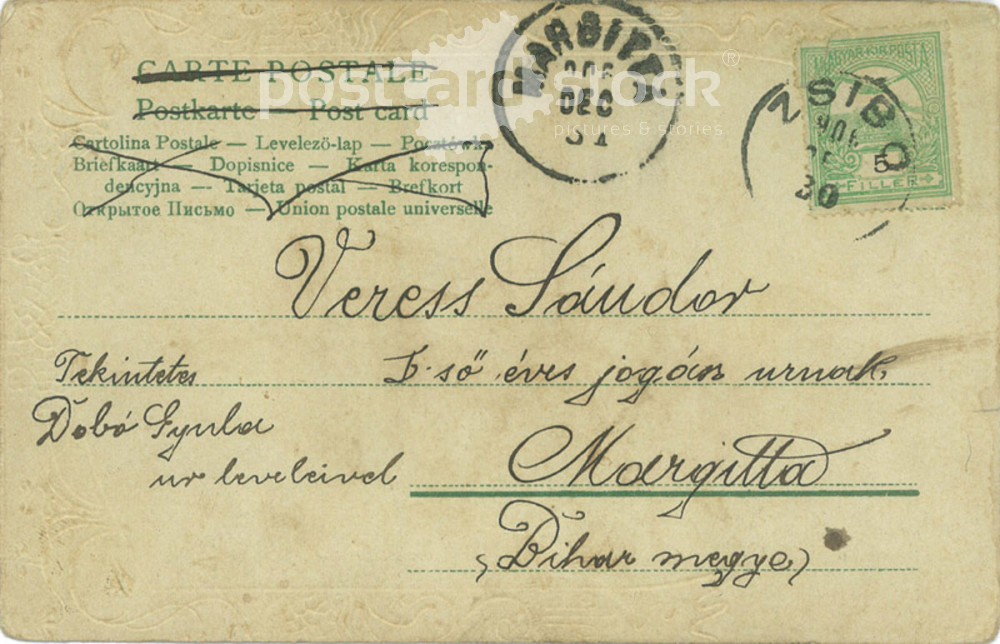 CARTE POSTALE
Postkarte — Post card
Cartolina Postale — Levelező-lap —
Briefkaart — Dopisnice — Karta korespon-
dencyjna — Tarjeta postal — Brefkort
Открытое Письмо — Union postale universelle
postcard stock®
pictures & stories
MARGITTA
906
DEC
31
MAGYAR KIR. POSTA
5
FILLÉR
ZSIBÓ
906
30
Veress Sándor
I-ső éves jogán urnak
Margitta
(Bihar megye)
Tekintetes
Dobó Gyula
ur leveleivel